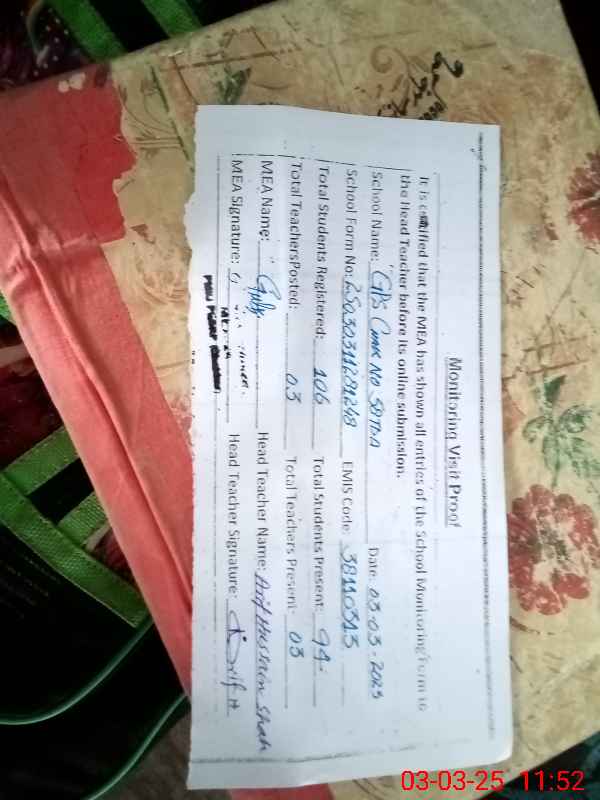 Monitoring Visit Proof
It is certified that the MEA has shown all entries of the School Monitoring Form to
the Head Teacher before its online submission.
School Name: GPS Chak No Date: 03-03-2025
School Form No: EMIS Code: 38110313
Total Students Registered: 106 Total Students Present: 94
Total TeachersPosted: 03 Total Teachers Present: 03
MEA Name: Head Teacher Name: Arif Hussain Shah
MEA Signature: Head Teacher Signature: Arif H
03-03-25 11:52